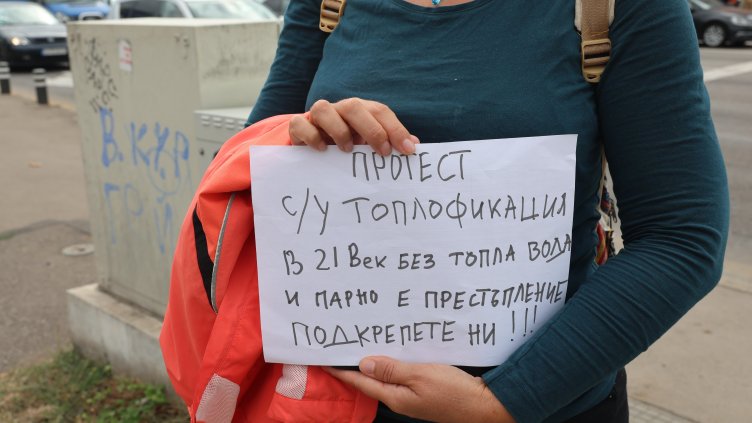 ПРОТЕСТ
С/У ТОПЛОФИКАЦИЯ
В 21 Век БЕЗ ТОПЛА ВОДА
И ПАРНО Е ПРЕСТЪПЛЕНИЕ
ПОДКРЕПЕТЕ НИ !!!